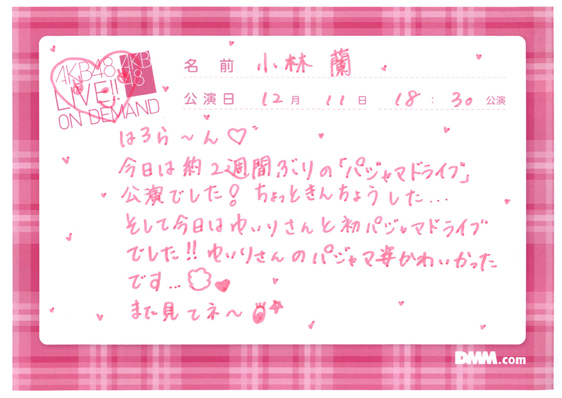 AKB48
LIVE!!
ON DEMAND
AKB
48
名前 小林 蘭
公演日 12月 11日 18:30 公演
はろら〜ん♡
今日は約2週間ぶりの「パジャマドライブ」
公演でした! ちょっときんちょうした...
そして今日はゆいりさんと初パジャマドライブ
でした!! ゆいりさんのパジャマ姿かわいかった
です...
また見てネ〜
DMM.com